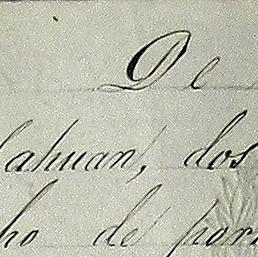 De
cahuan, dos
ho de por